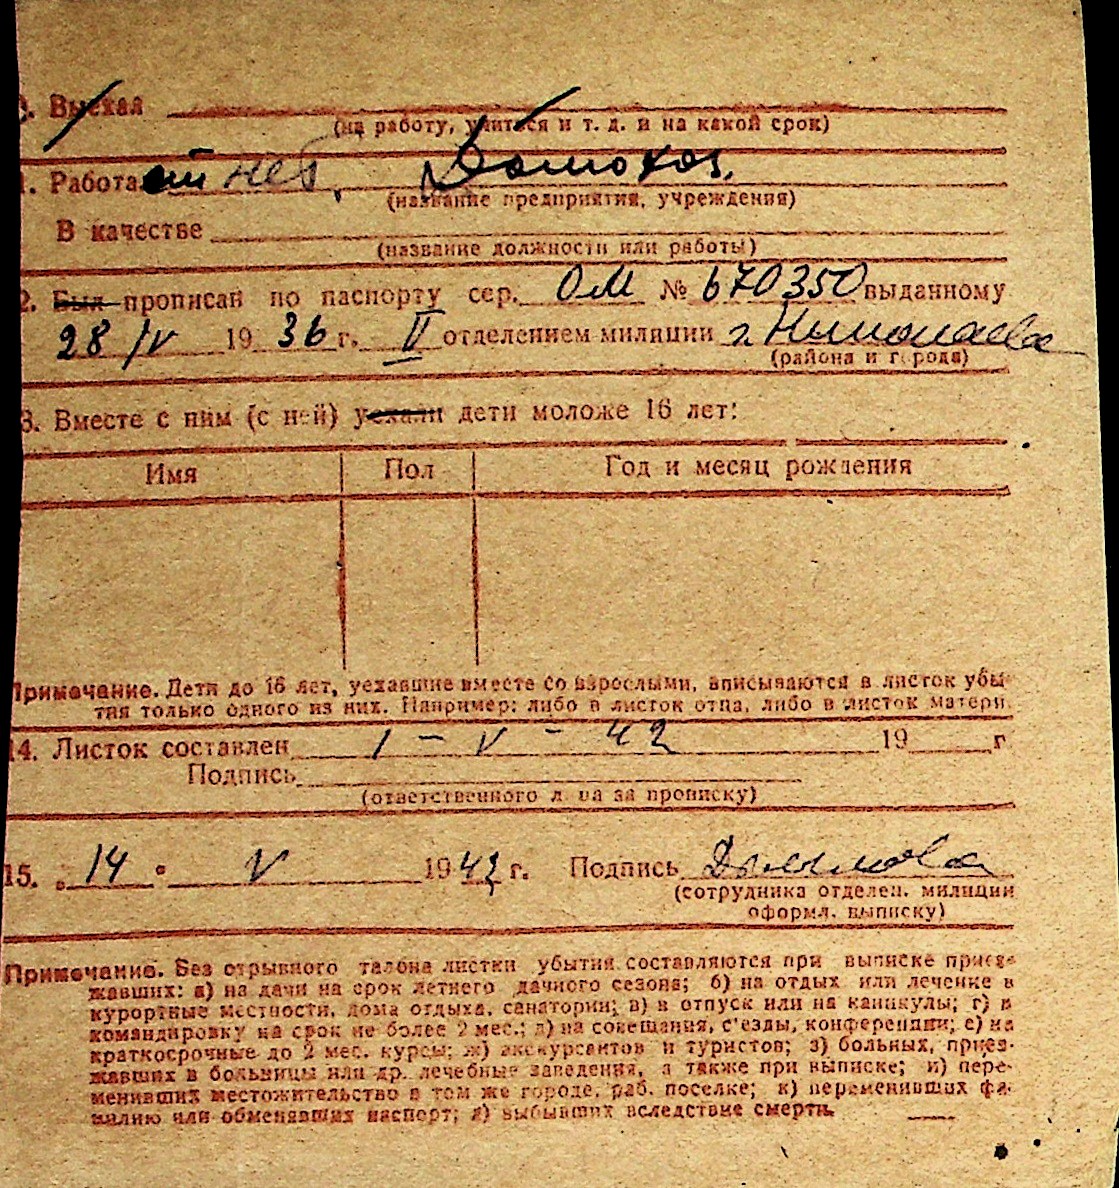 . Выехал
(на работу, учиться и т. д. и на какой срок)
1. Работа Домохоз.
(название предприятия, учреждения)
В качестве
(название должности или работы)
2. Был прописан по паспорту сер. ОМ № 670350 выданному
28/IV 1936 г. II отделением милиции г. Николаева
(района и города)
3. Вместе с ним (с ней) уехали дети моложе 16 лет:
Имя Пол Год и месяц рождения
Примечание. Дети до 16 лет, уехавшие вместе со взрослыми, вписываются в листок убы-
тия только одного из них. Например: либо в листок отца, либо в листок матери.
14. Листок составлен 1 - V - 42 19 г
Подпись
(ответственного лица за прописку)
15. „14" V 1942 г. Подпись
(сотрудника отделен. милиции
оформл. выписку)
Примечание. Без отрывного талона листки убытия составляются при выписке приез-
жавших: а) на дачи на срок летнего дачного сезона; б) на отдых или лечение в
курортные местности, дома отдыха, санатории; в) в отпуск или на каникулы; г) в
командировку на срок не более 2 мес.; д) на совещания, с'езды, конференции; е) на
краткосрочные до 2 мес. курсы; ж) экскурсантов и туристов; з) больных, приез-
жавших в больницы или др. лечебные заведения, а также при выписке; и) пере-
менивших местожительство в том же городе, раб. поселке; к) переменивших фа-
милию или обменявших паспорт; л) выбывших вследствие смерти.